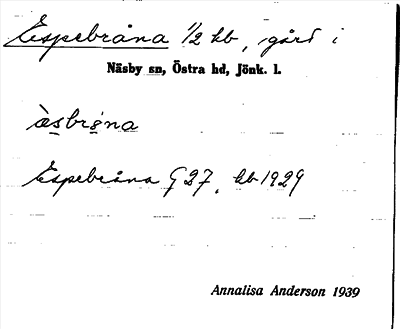 Espebråna 1/2 kb, gård i
Näsby sn, Östra hd, Jönk. l.
àsbrǫ̀na
Espebråna G 27, kb 1929
Annalisa Anderson 1939